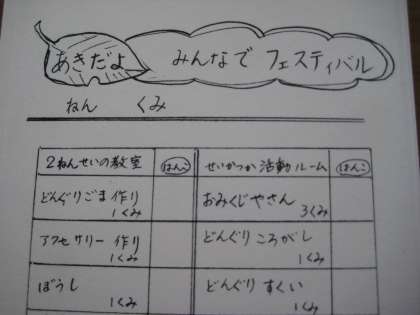 あきだよ みんなで フェスティバル
ねん くみ
2ねんせいの教室 はんこ せいかつか 活動ルーム はんこ
どんぐりごま 作り 1くみ おみくじやさん 3くみ
アクセサリー 作り 1くみ どんぐり ころがし 1くみ
ぼうし 1くみ どんぐり すくい 1くみ